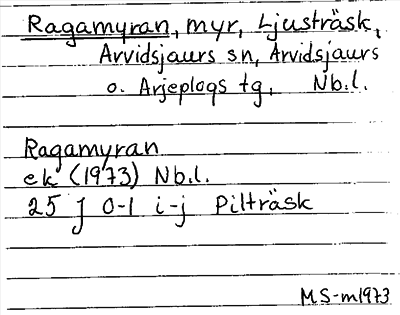 Ragamyran, myr, Ljusträsk,
Arvidsjaurs sn, Arvidsjaurs
o. Arjeplogs tg, Nb.l.
Ragamyran
ek (1973) Nb.l.
25 J 0-1 i-j Pilträsk
MS-m1973